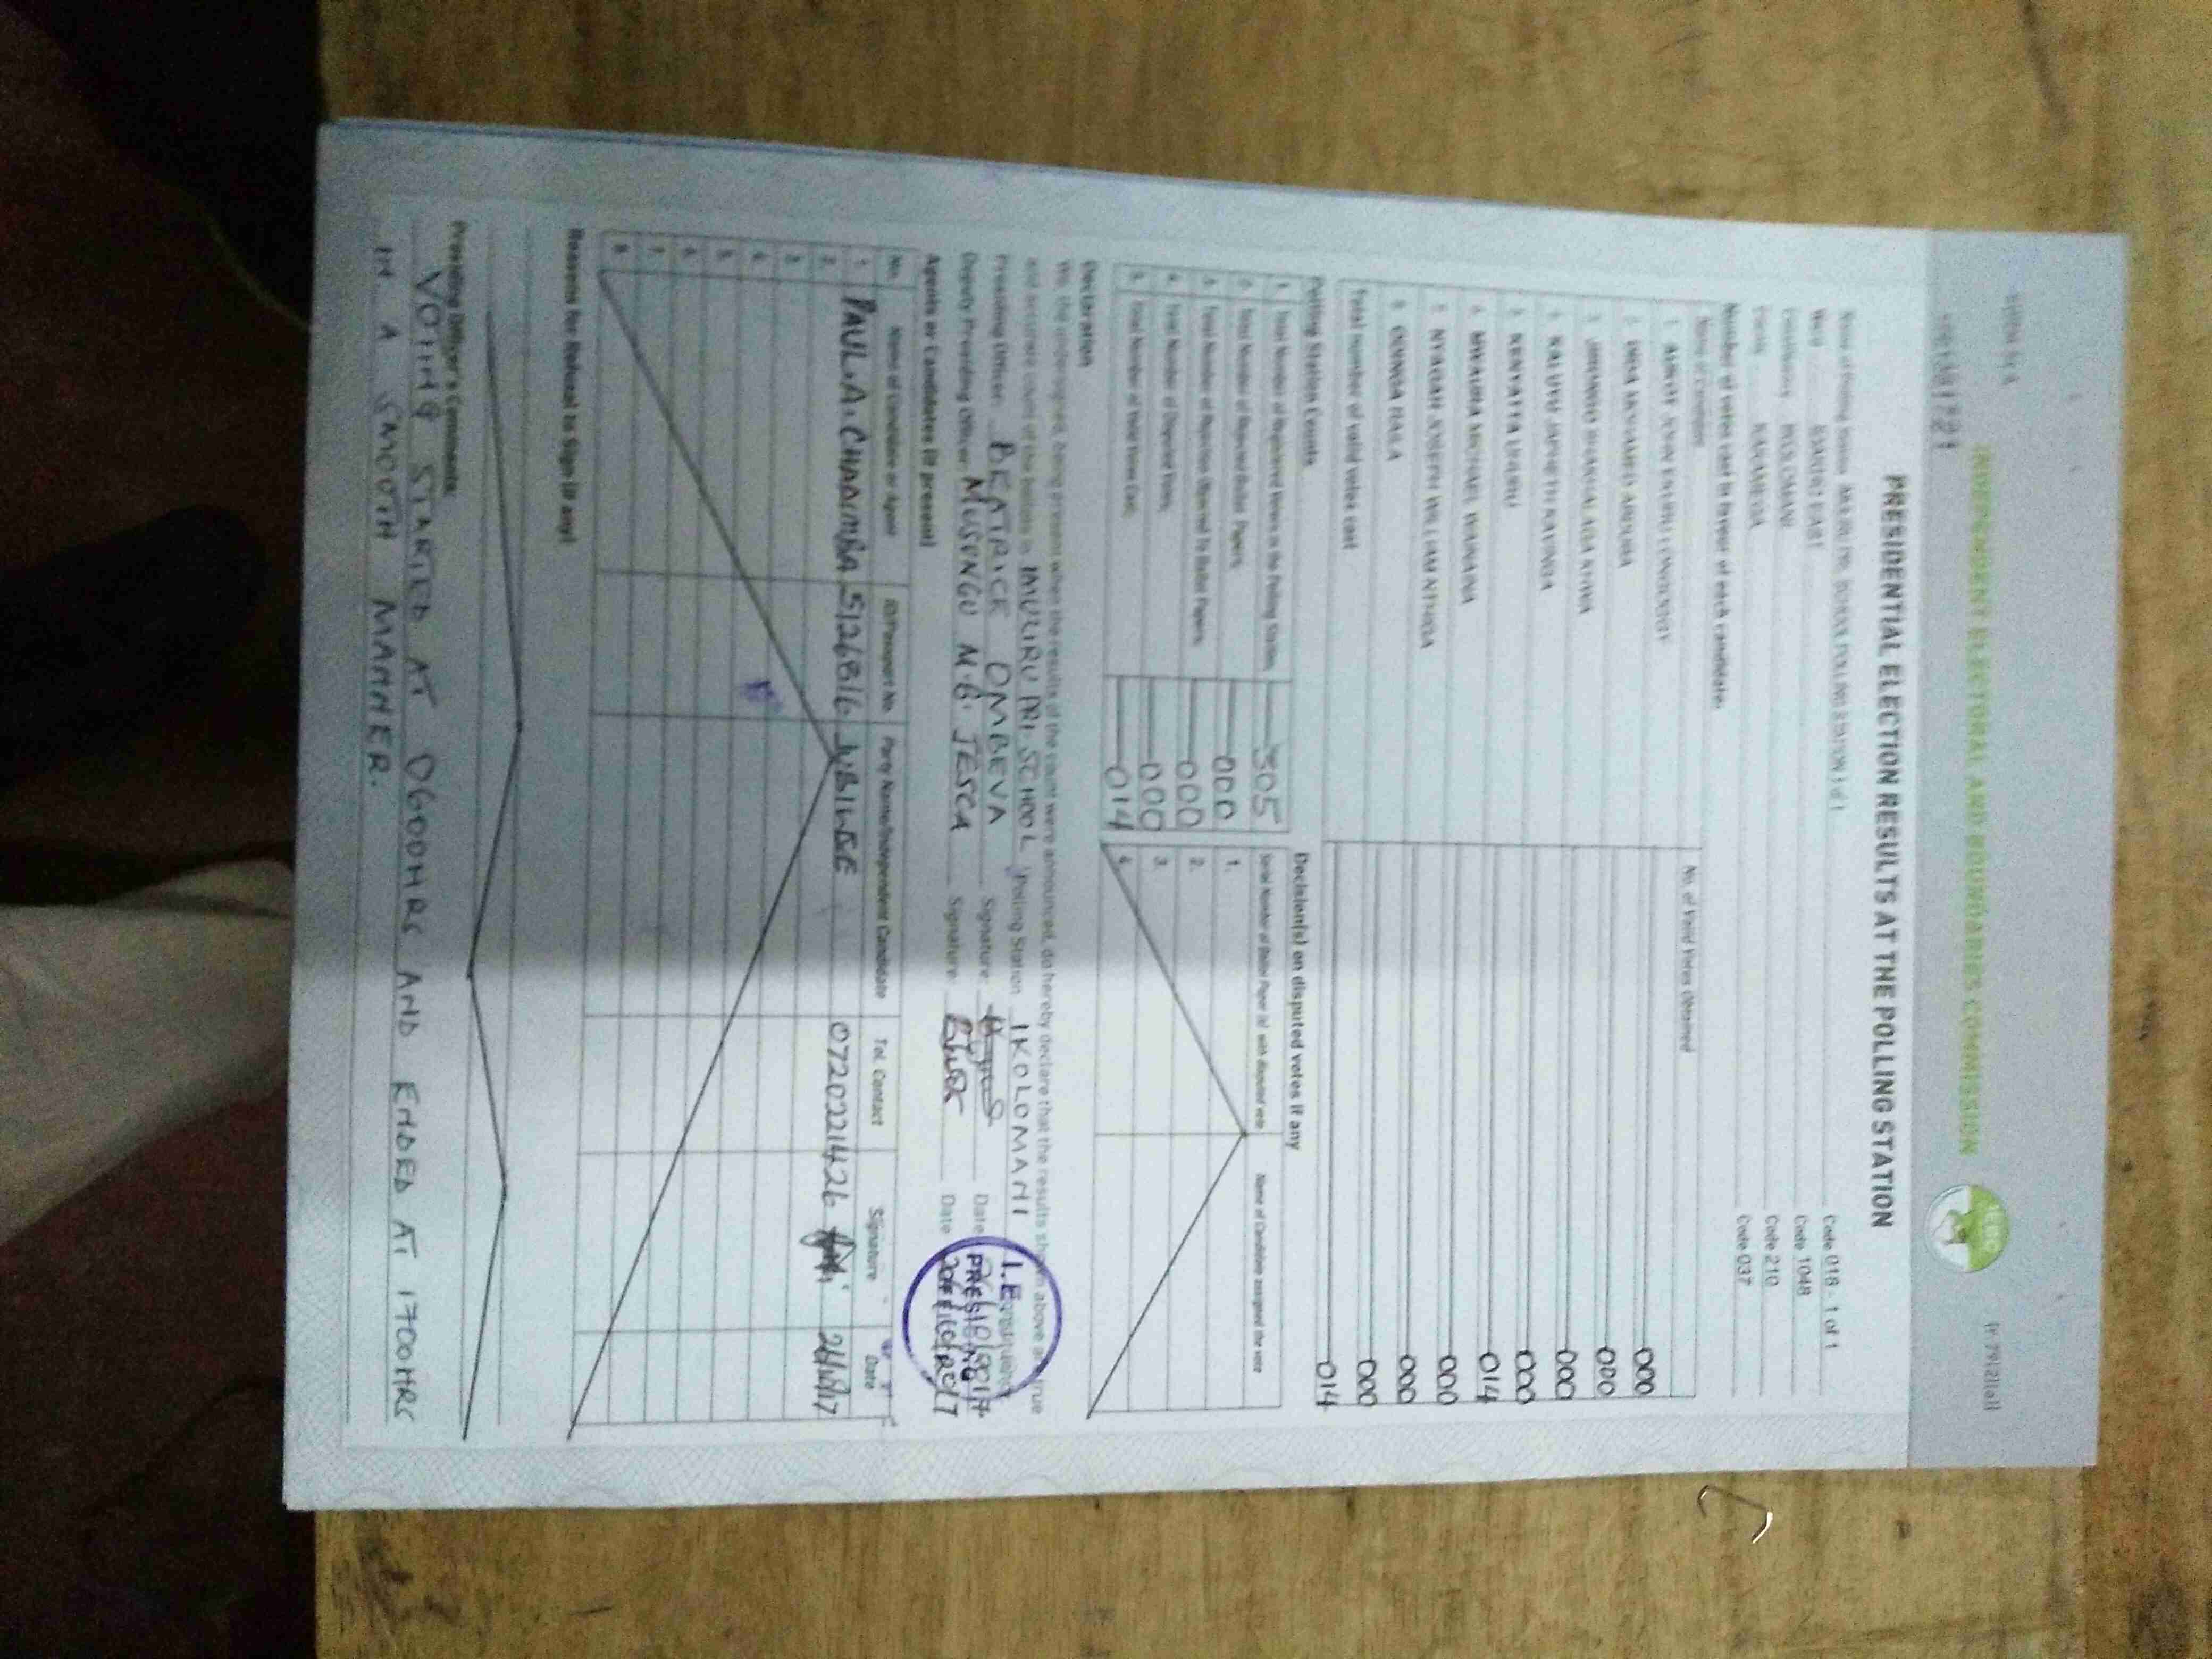 FORM 34A
(r 79(2)(a))
INDEPENDENT ELECTORAL AND BOUNDARIES COMMISSION
PRESIDENTIAL ELECTION RESULTS AT THE POLLING STATION
Name of Polling Station Code 018 - 1 of 1
Ward Code 1048
Constituency IKOLOMANI Code 210
County KAKAMEGA Code 037
Number of votes cast in favour of each candidate.
Name of Candidate No. of Valid Votes Obtained
1. AUKOT JOHN EKURU LONGOGGY 000
2. DIDA MOHAMED ABDUBA 000
3. JIRONGO SHAKHALAGA KHWA 000
4. KALUYU JAPHETH KAVINGA 000
5. KENYATTA UHURU 014
6. MWAURA MICHAEL WAINAINA 000
7. NYAGAH JOSEPH WILLIAM NTHIGA 000
8. ODINGA RAILA 000
Total number of valid votes cast 014
Polling Station Counts
1. Total Number of Registered Voters in the Polling Station 305
2. Total Number of Rejected Ballot Papers 000
3. Total Number of Rejection Objected To Ballot Papers 000
4. Total Number of Disputed Votes 000
5. Total Number of Valid Votes Cast 014
Decision(s) on disputed votes if any
Serial Number of Ballot Paper (s) with disputed vote Name of Candidate assigned the vote
1.
2.
3.
4.
Declaration
We, the undersigned, being present when the results of the count were announced, do hereby declare that the results shown above are true
and accurate count of the ballots in IMULIRU PRI SCHOOL Polling Station IKOLOMANI Constituency
Presiding Officer BEATRICE OMBEVA Signature: Date 26/10/2017
Deputy Presiding Officer MUSUNGU M.B. JESCA Signature: Date 26/10/2017
I.E
PRESIDING
OFFICER
Agents or Candidates (if present)
No. Name of Candidate or Agent ID/Passport No. Party Name/Independent Candidate Tel. Contact Signature Date
1. PAUL.A.CHADIMBA 5126816 JUBILEE 0720221426 26/10/17
2.
3.
4.
5.
6.
7.
8.
Reasons for Refusal to Sign (if any)
Presiding Officer's Comments:
VOTING STARTED AT 0600HRS AND ENDED AT 1700HRS
IN A SMOOTH MANNER.